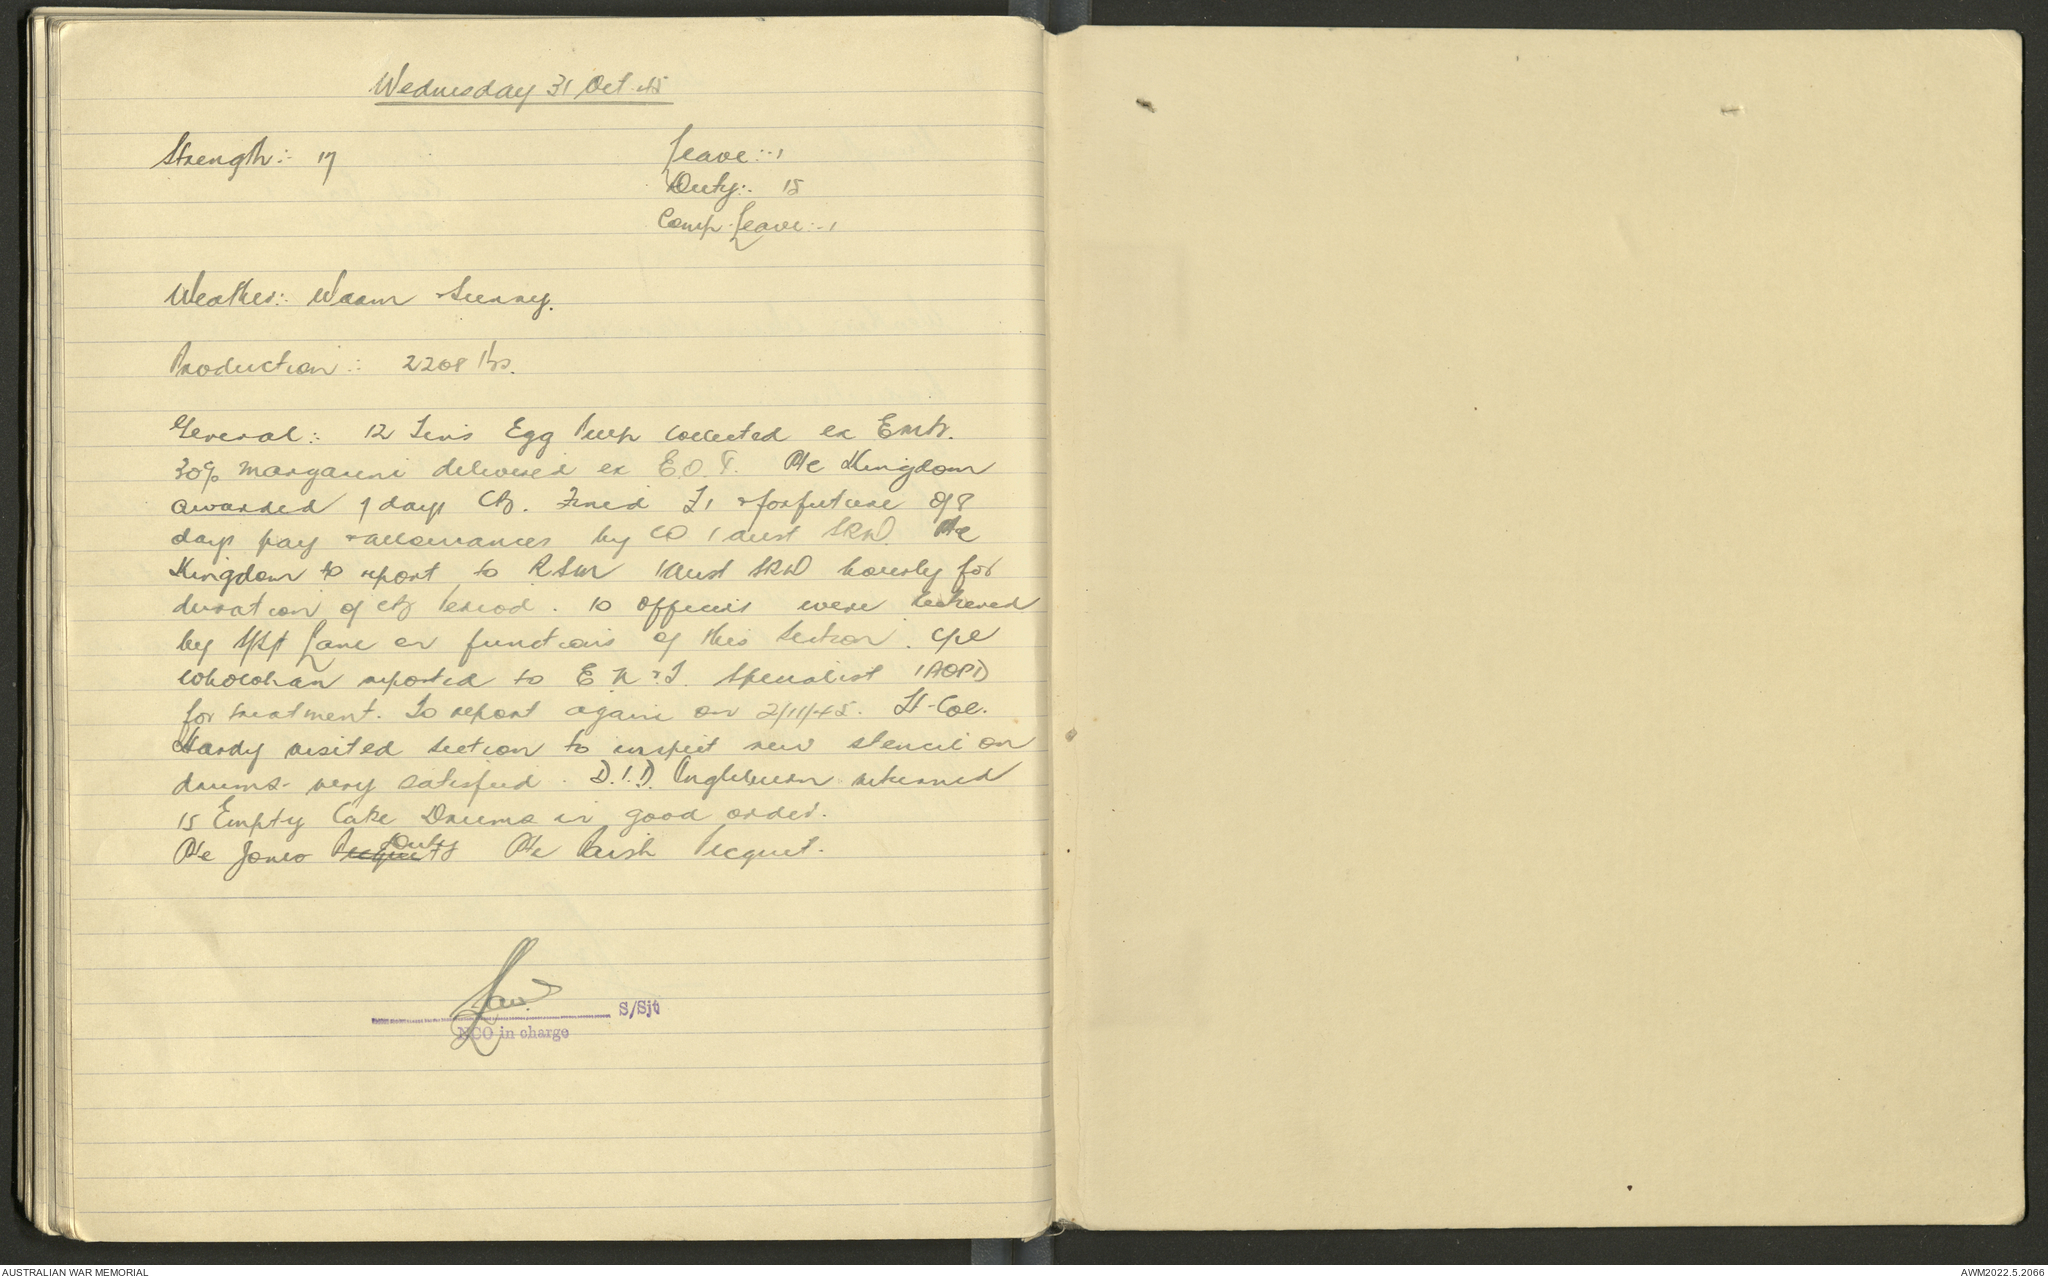 Wednesday 31 Oct. 45
Strength:- 17
Leave:- 1
Duty:- 15
Comp. Leave:- 1
Weather:- Warm & Sunny.
Production:- 2208 lbs.
General:- 12 Tins Egg Pulp collected ex
30% margarine delivered ex E.O.T. Pte Kingdom
awarded 7 days CB. Fined £1 & forfeiture of 8
days pay & allowances by CO 1 Aust SRD. Pte
Kingdom to report to RSM 1 Aust SRD hourly for
duration of CB Period. 10 officers were lectured
by S/Sjt Lane on functions of this Section. Cpl
reported to E N & T. Specialist
for treatment. To report again on 2/11/45. Lt-Col.
Hardy visited section to inspect new stencil on
drums - very satisfied. D.I.D. Ingleburn returned
15 Empty Cake Drums in good order.
Pte Jones Duty Pte Parish Picquet.
S/Sjt
NCO in charge
AUSTRALIAN WAR MEMORIAL
AWM2022.5.2066